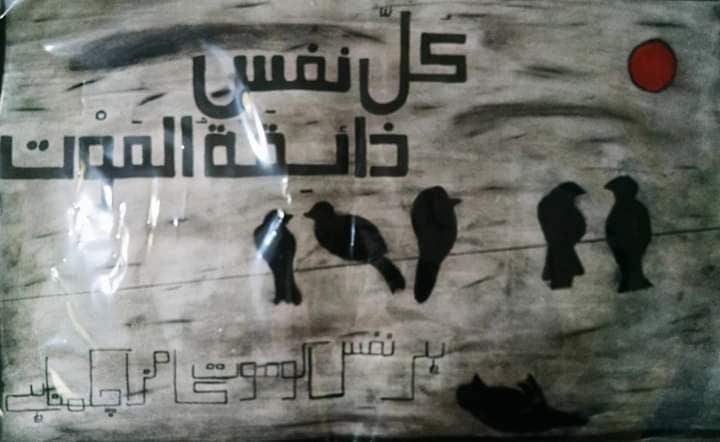 كُلّ نفس
ذائِقَةُ المَوْت
ہر نفس کو موت کا مزہ